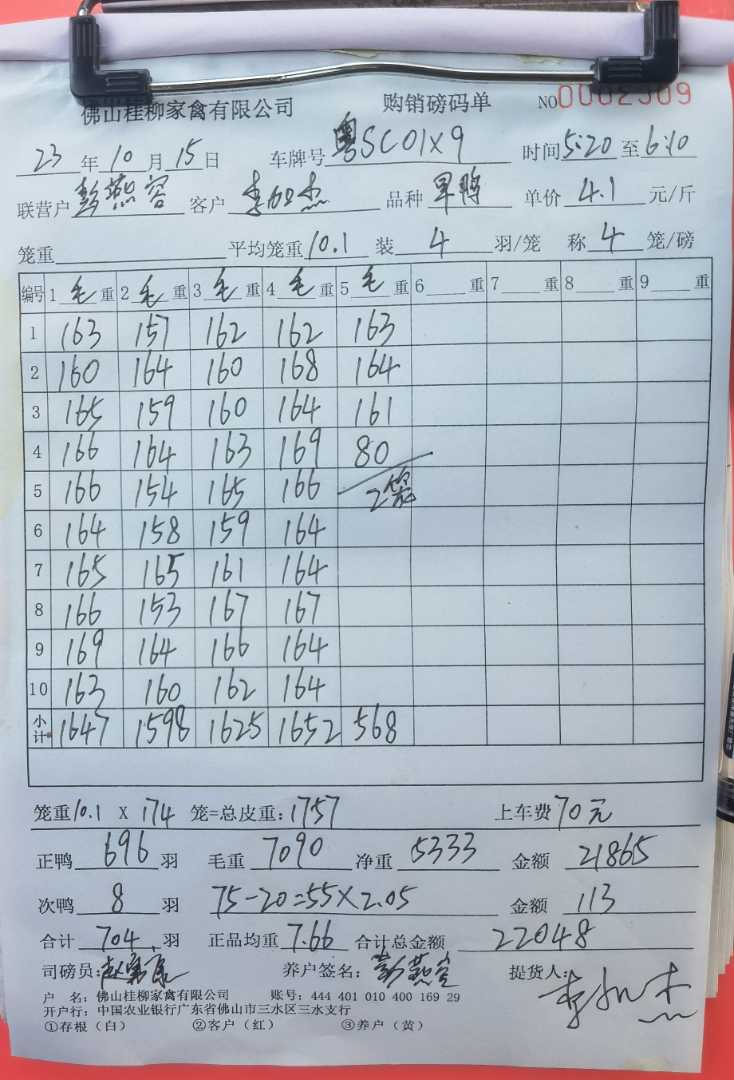 佛山桂柳家禽有限公司 购销磅码单 NO0002309
23 年 10 月 15 日 车牌号 粤SC01X9 时间 5:20 至 6:10
联营户 彭燕容 客户 李如杰 品种 旱鸭 单价 4.1 元/斤
笼重 平均笼重 10.1 装 4 羽/笼 称 4 笼/磅
编号 1 毛 重 2 毛 重 3 毛 重 4 毛 重 5 毛 重 6 重 7 重 8 重 9 重
1 163 157 162 162 163
2 160 164 160 168 164
3 165 159 160 164 161
4 166 164 163 169 80
5 166 154 165 166 2笼
6 164 158 159 164
7 165 165 161 164
8 166 153 167 167
9 169 164 166 164
10 163 160 162 164
小计 1647 1598 1625 1652 568
笼重 10.1 X 174 笼=总皮重: 1757 上车费 70元
正鸭 696 羽 毛重 7090 净重 5333 金额 21865
次鸭 8 羽 75-20=55×2.05 金额 113
合计 704 羽 正品均重 7.66 合计总金额 22048
司磅员: 养户签名: 彭燕容 提货人: 李如杰
户 名: 佛山桂柳家禽有限公司 账号: 444 401 010 400 169 29
开户行: 中国农业银行广东省佛山市三水区三水支行
①存根（白） ②客户（红） ③养户（黄）